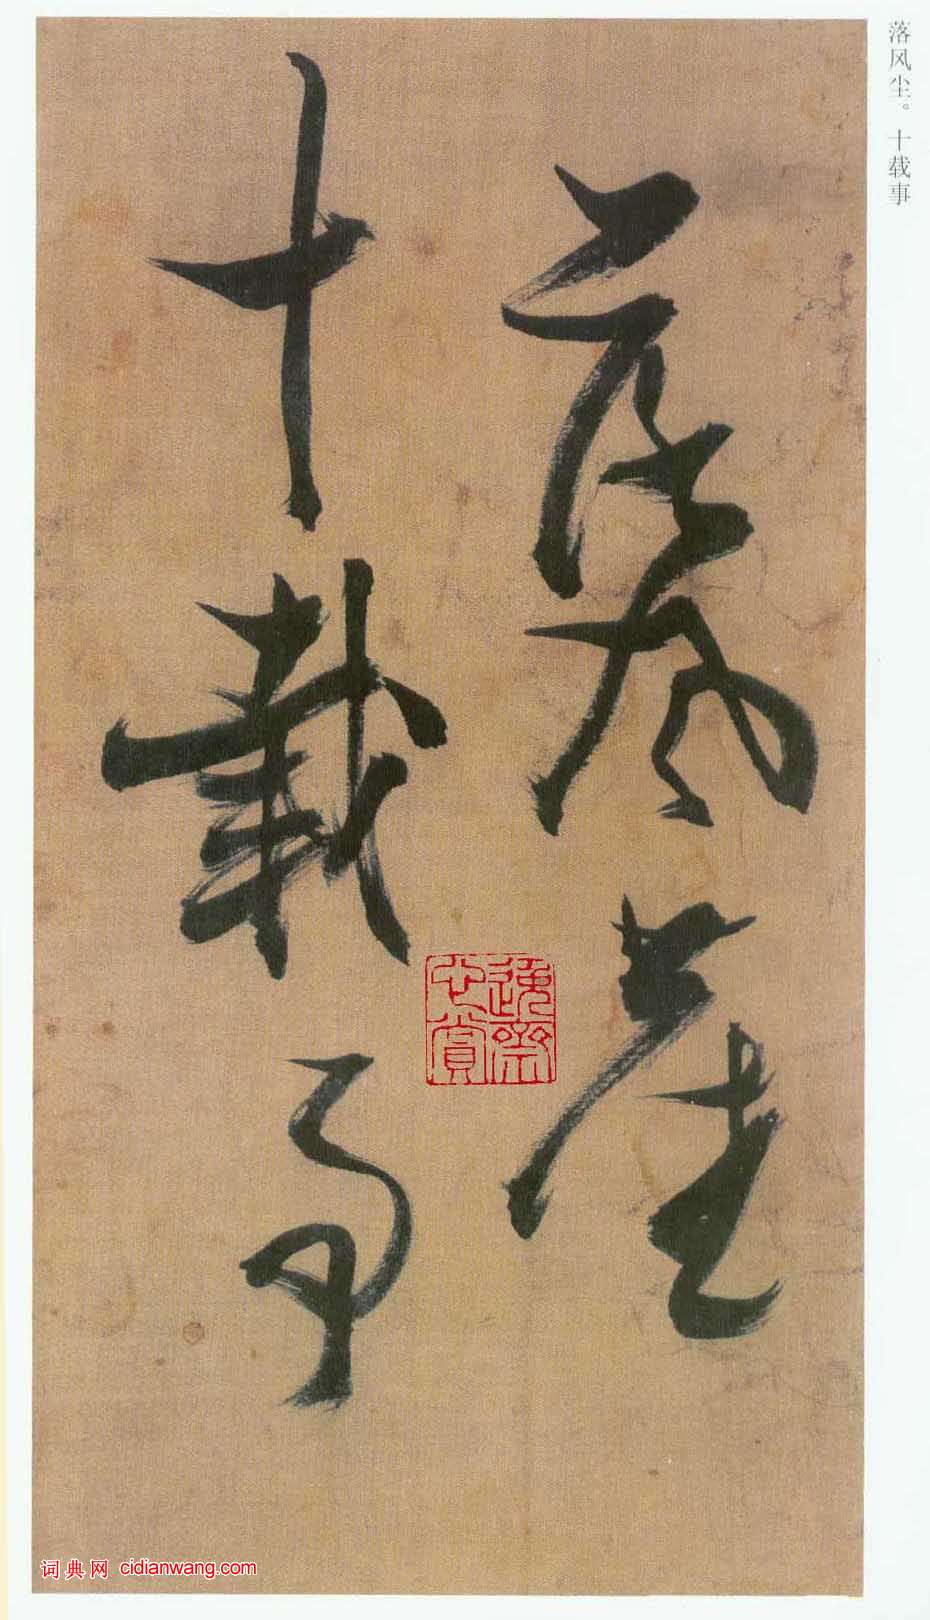 落风尘。十载事
落風塵
十載事
词典网 cidianwang.com